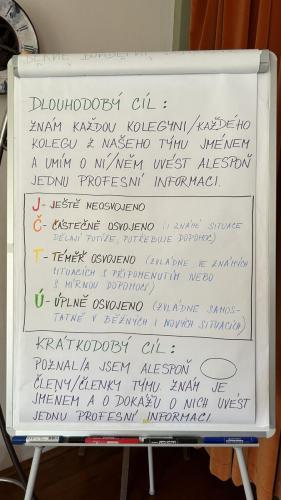 DLOUHODOBÝ CÍL:
ZNÁM KAŽDOU KOLEGYNI/KAŽDÉHO
KOLEGU Z NAŠEHO TÝMU JMÉNEM
A UMÍM O NÍ/NĚM UVÉST ALESPOŇ
JEDNU PROFESNÍ INFORMACI.
J - JEŠTĚ NEOSVOJENO
Č - ČÁSTEČNĚ OSVOJENO (I ZNÁMÉ SITUACE
DĚLAJÍ POTÍŽE, POTŘEBUJE DOPOMOC)
T - TÉMĚŘ OSVOJENO (ZVLÁDNE VE ZNÁMÝCH
SITUACÍCH S PŘIPOMENUTÍM NEBO
S MÍRNOU DOPOMOCÍ)
Ú - ÚPLNĚ OSVOJENO (ZVLÁDNE SAMOS-
TATNĚ V BĚŽNÝCH I NOVÝCH SITUACÍCH)
KRÁTKODOBÝ CÍL:
POZNAL/A JSEM ALESPOŇ
ČLENY/ČLENKY TÝMU ZNÁM JE
JMENEM A O DOKÁŽU O NICH UVÉST
JEDNU PROFESNÍ INFORMACI.